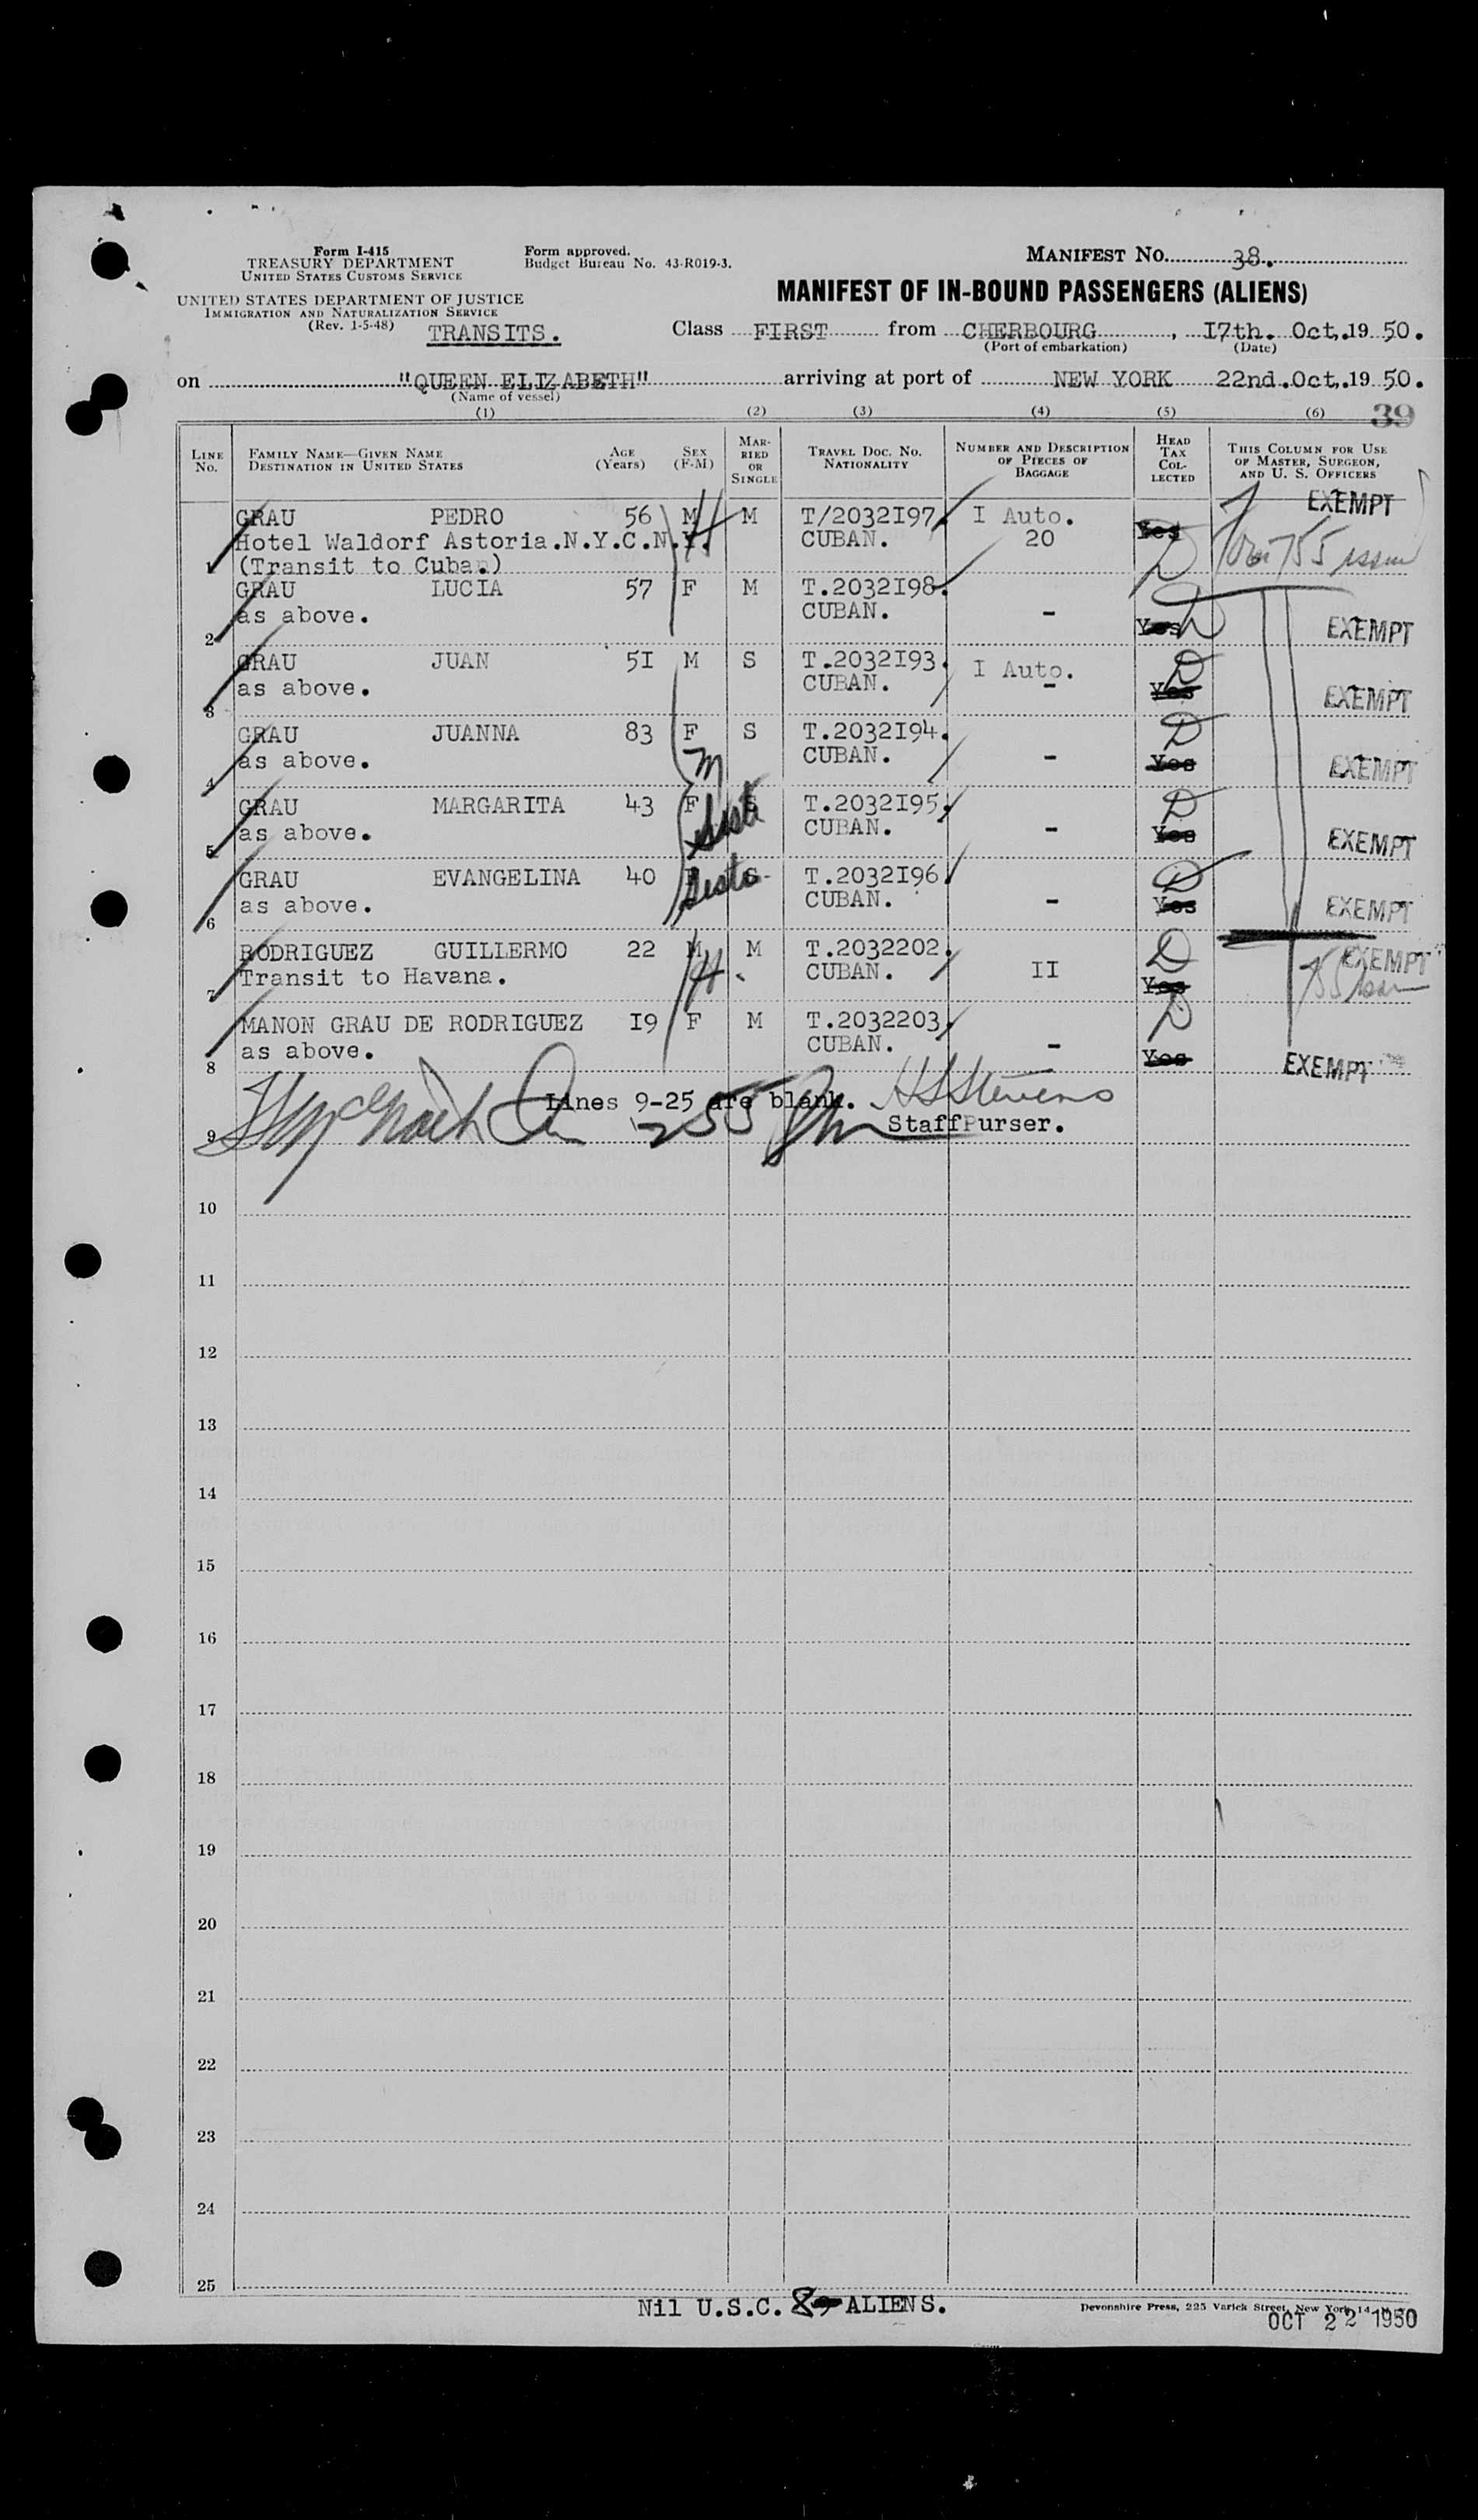 Form I-415
TREASURY DEPARTMENT
UNITED STATES CUSTOMS SERVICE
UNITED STATES DEPARTMENT OF JUSTICE
IMMIGRATION AND NATURALIZATION SERVICE
(Rev. 1-5-48)
TRANSITS.
Form approved.
Budget Bureau No. 43-R019-3.
MANIFEST NO. 38.
MANIFEST OF IN-BOUND PASSENGERS (ALIENS)
Class FIRST from CHERBOURG, I7th. Oct, 19 50.
(Port of embarkation) (Date)
on "QUEEN ELIZABETH" arriving at port of NEW YORK 22nd. Oct, 19 50.
(Name of vessel)
(1) (2) (3) (4) (5) (6) 39
LINE NO. FAMILY NAME—GIVEN NAME DESTINATION IN UNITED STATES AGE (Years) SEX (F-M) MARRIED OR SINGLE TRAVEL DOC. NO. NATIONALITY NUMBER AND DESCRIPTION OF PIECES OF BAGGAGE HEAD TAX COLLECTED THIS COLUMN FOR USE OF MASTER, SURGEON, AND U. S. OFFICERS
GRAU PEDRO 56 M M T/2032I97. I Auto. Yes EXEMPT
Hotel Waldorf Astoria.N.Y.C.N.Y. CUBAN. 20
1 (Transit to Cuba.) D 755
GRAU LUCIA 57 F M T.2032I98.
as above. CUBAN. - Yes D EXEMPT
2
GRAU JUAN 5I M S T.2032I93. I Auto. D
as above. CUBAN. - Yes EXEMPT
3
GRAU JUANNA 83 F S T.2032I94. D
as above. M CUBAN. - Yes EXEMPT
4
GRAU MARGARITA 43 F S T.2032I95. D
as above. CUBAN. - Yes EXEMPT
5
GRAU EVANGELINA 40 F S T.2032I96. D
as above. CUBAN. - Yes EXEMPT
6
RODRIGUEZ GUILLERMO 22 M M T.2032202. D EXEMPT
Transit to Havana. CUBAN. II Yes 755
7
MANON GRAU DE RODRIGUEZ I9 F M T.2032203. D
as above. CUBAN. - Yes EXEMPT
8
Lines 9-25 are blank. H S Stevens
9 Staff Purser.
10
11
12
13
14
15
16
17
18
19
20
21
22
23
24
25
Nil U.S.C. 8 ALIENS.
Devonshire Press, 225 Varick Street, New York 14
OCT 22 1950